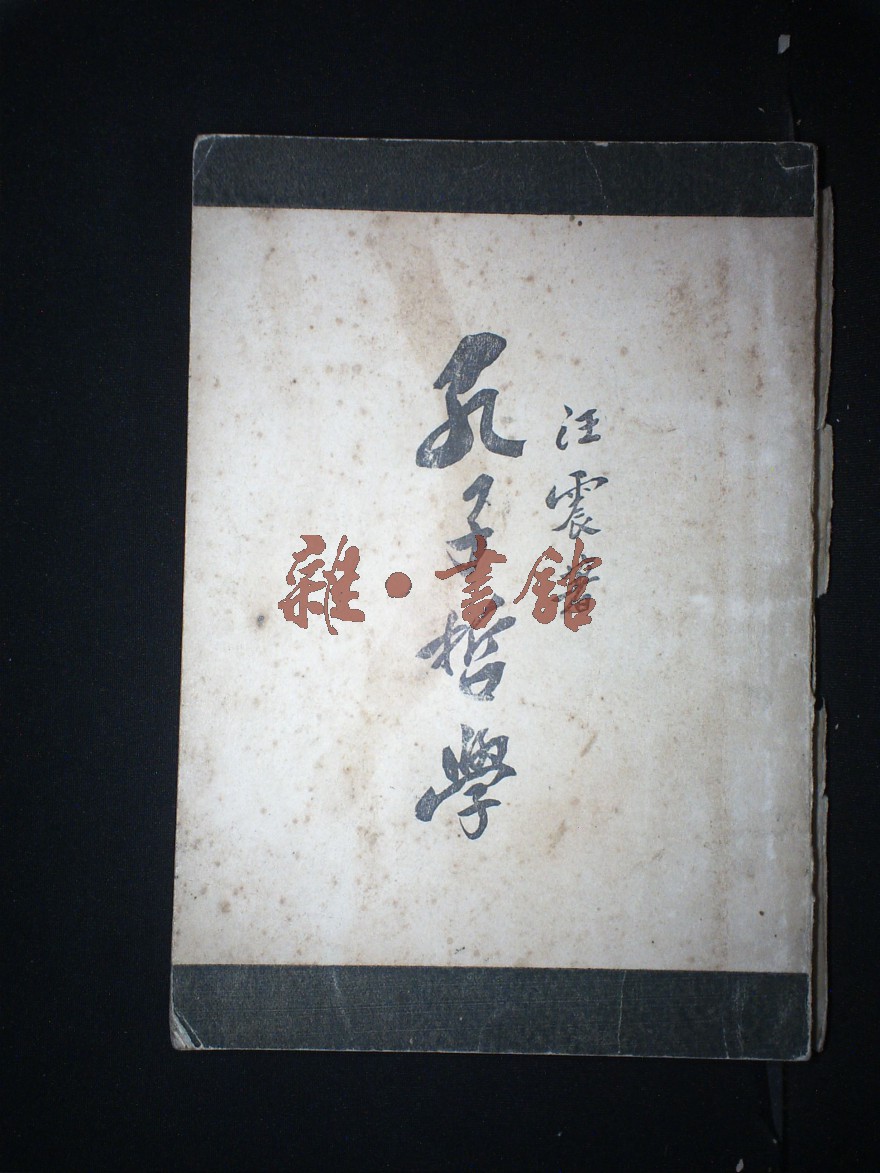 汪震著
孔子哲學
雜·書館